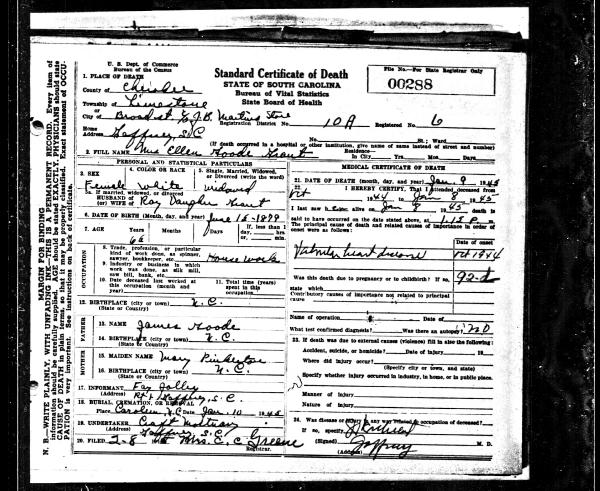 U. S. Dept. of Commerce
Bureau of the Census
Standard Certificate of Death
STATE OF SOUTH CAROLINA
Bureau of Vital Statistics
State Board of Health
File No.—For State Registrar Only
00288
1. PLACE OF DEATH
County of Cherokee
Township of Limestone
City of Broad st
Registration District No. 10A Registered No. 6
Home Address Gaffney, S.C. St.; Ward
(If death occurred in a hospital or other institution, give name of same instead of street and number)
2. FULL NAME Mrs Ellen Goode Residence— In City Yrs. Mos. Days
PERSONAL AND STATISTICAL PARTICULARS
3. SEX Female
4. COLOR OR RACE White
5. Single, Married, Widowed, or Divorced (write the word) widowed
5a. If married, widowed, or divorced
HUSBAND of (or) WIFE of Roy
6. DATE OF BIRTH (Month, day, and year) June 1879
7. AGE Years Months Days If, less than 1 day, hrs. or min.
OCCUPATION
8. Trade, profession, or particular kind of work done, as spinner, sawyer, bookkeeper, etc. House work
9. Industry or business in which work was done, as silk mill, saw mill, bank, etc.
10. Date deceased last worked at this occupation (month and year)
11. Total time (years) spent in this occupation
12. BIRTHPLACE (city or town) N.C.
(State or Country)
FATHER
13. NAME James Goode
14. BIRTHPLACE (city or town) N.C.
(State or Country)
MOTHER
15. MAIDEN NAME Mary
16. BIRTHPLACE (city or town) N.C.
(State or Country)
17. INFORMANT Fay Jolley
(Address) Gaffney, S.C.
18. BURIAL, CREMATION, OR REMOVAL
Place N.C. Date Jan. 10 1945
19. UNDERTAKER
(Address) Gaffney S.C.
20. FILED 2-8 Mrs. E. C. Greene
Registrar.
MEDICAL CERTIFICATE OF DEATH
21. DATE OF DEATH (month, day, and year) Jan. 9 1945
22. I HEREBY CERTIFY, That I attended deceased from
Oct 1944 to Jan 8 1945
I last saw h alive on Jan 8 1945 death is
said to have occurred on the date stated above, at
The principal cause of death and related causes of importance in order of onset were as follows:
Date of onset
Valvular heart disease Oct 1944
Was this death due to pregnancy or to childbirth? If so, state which
Contributory causes of importance not related to principal cause
Name of operation
What test confirmed diagnosis? Was there an autopsy? no
23. If death was due to external causes (violence) fill in also the following:
Accident, suicide, or homicide? Date of injury 19
Where did injury occur?
(Specify city or town, and state)
Specify whether injury occurred in industry, in home, or in public place.
Manner of injury
Nature of injury
24. Was disease or injury in any way related to occupation of deceased?
If so, specify
(Signed) M. D.
(Address) Gaffney
MARGIN FOR BINDING
N. B.—WRITE PLAINLY, WITH UNFADING INK—THIS IS A PERMANENT RECORD. Every item of
information should be carefully supplied. AGE should be stated EXACTLY. PHYSICIANS should state
CAUSE OF DEATH in plain terms, so that it may be properly classified. Exact statement of OCCU-
PATION is very important. See instructions on back of certificate.